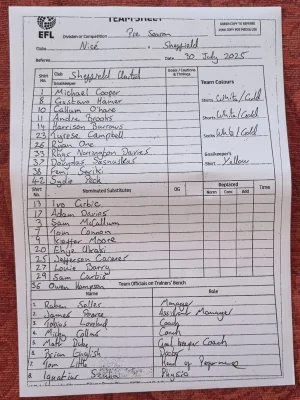 TEAM SHEET
EFL
Division or Competition Pre Season
Nice v Sheffield
Referee Date 30 July 2025
Shirt No Club Sheffield United
Goalkeeper
1 Michael Cooper
8 Gustavo Hamer
10 Callum O'hare
11 Andre Brooks
14 Harrison Burrows
23 Tyrese Campbell
26 Ryan One
33 Rhys Norrington Davies
38 Femi Seriki
42 Sydie Peck
Team Colours
Shirts White/Gold
Shorts White/Gold
Socks White/Gold
Goalkeeper's
Shirt Yellow
Shirt No. Nominated Substitutes OG Replaced Time
13 Ivo Grbic
17 Adam Davies
3 Sam McCallum
7 Tom Cannon
9 Kieffer Moore
20
25 Jefferson Caceres
27 Louie Barry
29 Sam Curtis
36 Owen Hampson
Team Officials on Trainers' Bench
Name Role
1. Ruben Selles Manager
2. James Assistant Manager
3. Tobias Loveland Coach
4. Coach
5. Matt Duke Goalkeeper Coach
6. Brian English Doctor
7. Tom Little Head of Performance
8. Ignatius Physio